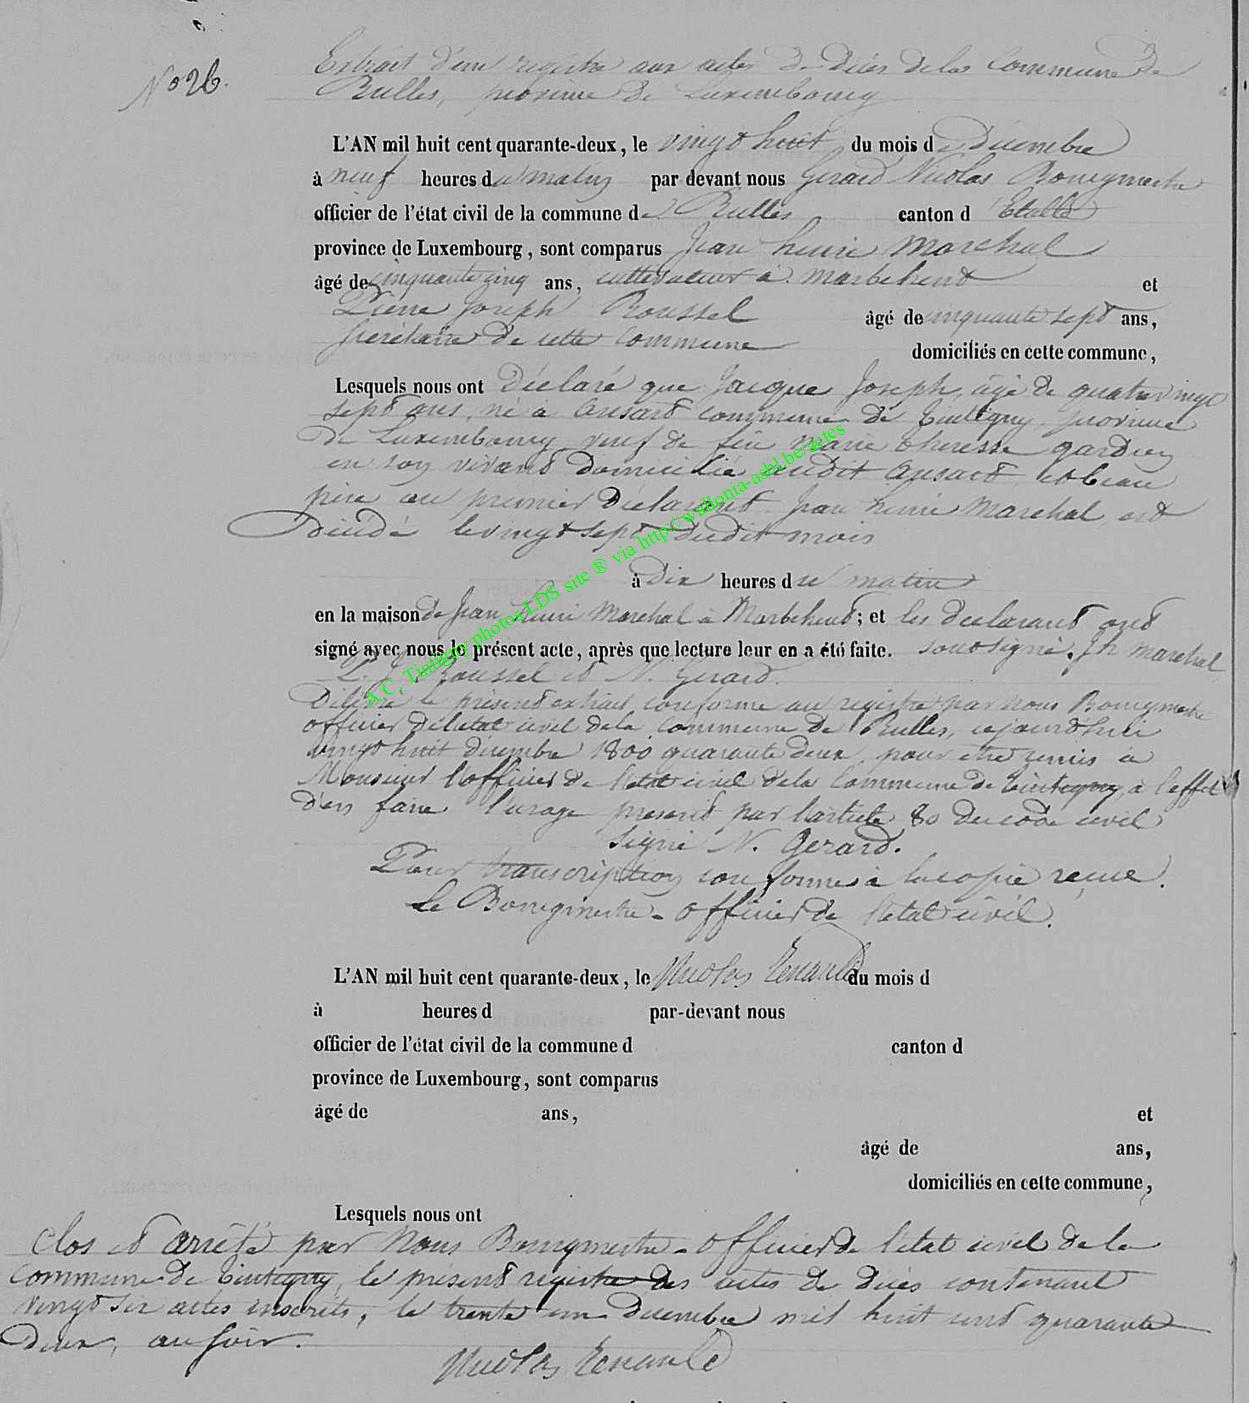 N° 26.
Extrait d'un registre aux actes de Décès dela Commune de
Rulles, province de Luxembourg
L'AN mil huit cent quarante-deux, le vingt huit du mois de Décembre
à neuf heures du matin par devant nous Gerard Nicolas Bourgmestre
officier de l'état civil de la commune de Rulles canton d'Etalle
province de Luxembourg, sont comparus Jean henri Marchal
âgé de cinquante cinq ans, cultivateur à marbehent et
Pierre Joseph Roussel âgé de cinquante sept ans,
secrétaire de cette Commune domiciliés en cette commune,
Lesquels nous ont Déclaré que Jacque Joseph, âgé de quatre vingt
sept ans, né à ansart commune de Tintigny province
de Luxembourg veuf de feu marie therese
en son vivant domicilié audit ansart et beau
père au premier Déclarant Jean henri Marchal est
Décédé le vingt sept dudit mois
à Dix heures du matin
en la maison de Jean henri Marchal à Marbehent; et les declarant ont
signé avec nous le présent acte, après que lecture leur en a été faite. Sont signé. Jh marchal
P. J. Roussel et N. Gerard.
Délivré le présent extrait conforme au registre par nous Bourgmestre
officier de l'état civil dela commune de Rulles, cejourd'hui
vingt huit décembre 1800 quarante deux, pour être remis à
Monsieur l'officier de l'état civil dela Commune de Tintigny, à l'effet
d'en faire l'usage prescrit par l'article 80 du code civil
signé N. Gerard.
Pour transcription conforme à la copie reçue.
Le Bourgmestre - officier de l'état civil.
Nicolas
L'AN mil huit cent quarante-deux, le du mois d
à heures d par-devant nous
officier de l'état civil de la commune d canton d
province de Luxembourg, sont comparus
âgé de ans, et
âgé de ans,
domiciliés en cette commune,
Lesquels nous ont
Clos et arrêté par Nous Bourgmestre - officier de l'état civil de la
Commune de Tintigny, le présent registre des actes de décès contenant
vingt six actes inscrits, le trente un Décembre mil huit cent quarante
Deux, au soir.
Nicolas
A.C. Tintigny photos LDS site ® via http://wallonia-asbl.be/actes